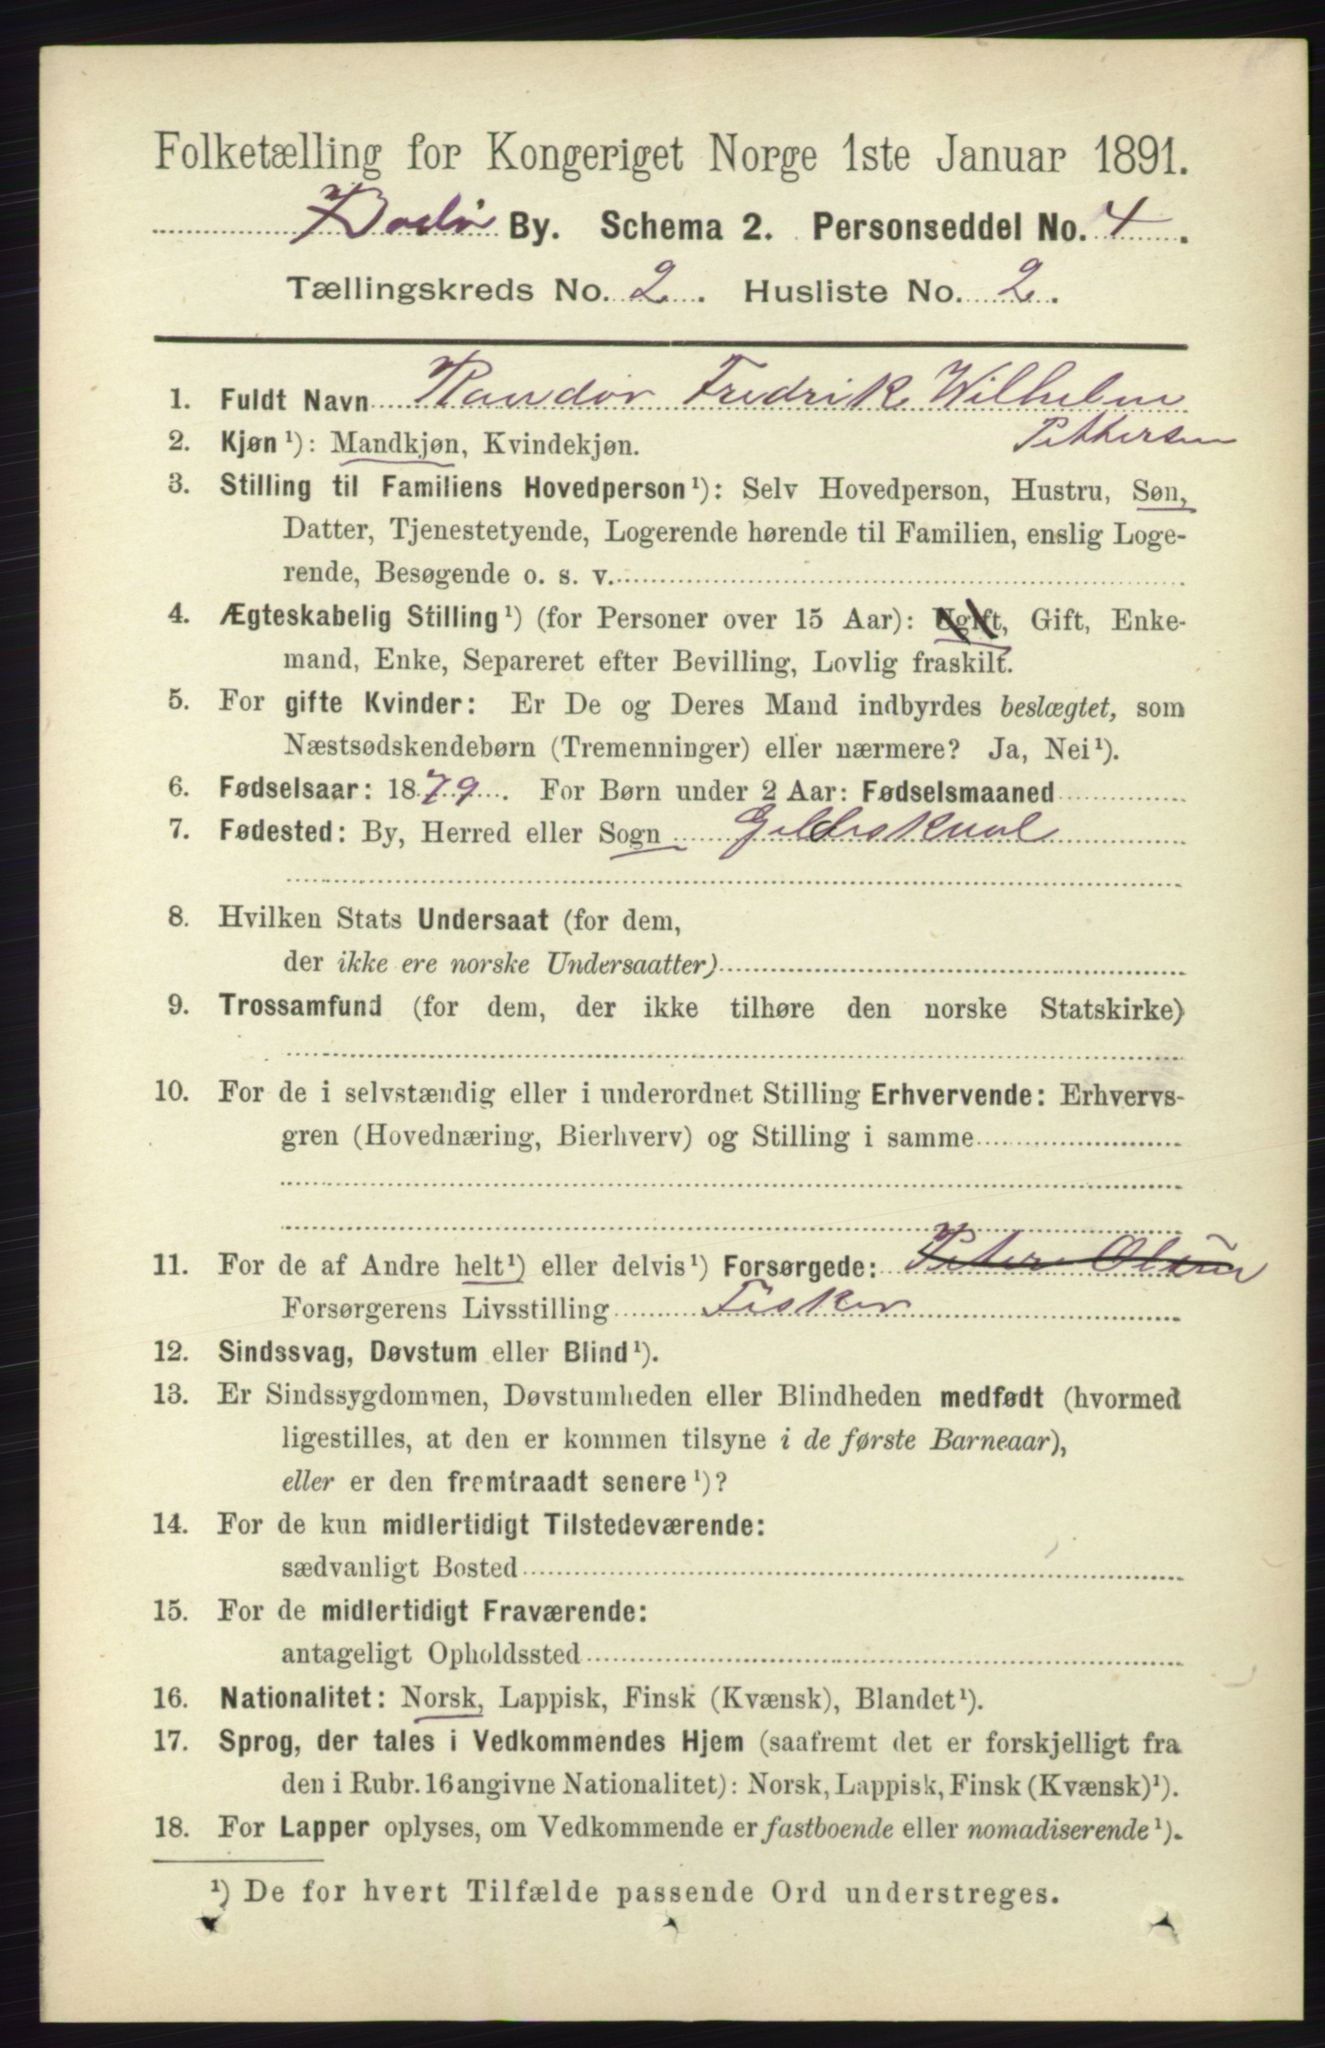 Folketælling for Kongeriget Norge 1ste Januar 1891.
Bodø By. Schema 2. Personseddel No. 4.
Tællingskreds No. 2. Husliste No. 2.
1. Fuldt Navn Randor Fredrik Wilhelm
Pettersen
2. Kjøn¹): Mandkjøn, Kvindekjøn.
3. Stilling til Familiens Hovedperson¹): Selv Hovedperson, Hustru, Søn,
Datter, Tjenestetyende, Logerende hørende til Familien, enslig Loge-
rende, Besøgende o. s. v.
4. Ægteskabelig Stilling¹) (for Personer over 15 Aar): Ugift, Gift, Enke-
mand, Enke, Separeret efter Bevilling, Lovlig fraskilt.
5. For gifte Kvinder: Er De og Deres Mand indbyrdes beslægtet, som
Næstsødskendebørn (Tremenninger) eller nærmere? Ja, Nei¹).
6. Fødselsaar: 1879. For Børn under 2 Aar: Fødselsmaaned
7. Fødested: By, Herred eller Sogn Gildeskaal
8. Hvilken Stats Undersaat (for dem,
der ikke ere norske Undersaatter)
9. Trossamfund (for dem, der ikke tilhøre den norske Statskirke)
10. For de i selvstændig eller i underordnet Stilling Erhvervende: Erhvervs-
gren (Hovednæring, Bierhverv) og Stilling i samme
11. For de af Andre helt¹) eller delvis¹) Forsørgede: Peter Olsen
Forsørgerens Livsstilling Fisker
12. Sindssvag, Døvstum eller Blind¹).
13. Er Sindssygdommen, Døvstumheden eller Blindheden medfødt (hvormed
ligestilles, at den er kommen tilsyne i de første Barneaar),
eller er den fremtraadt senere¹)?
14. For de kun midlertidigt Tilstedeværende:
sædvanligt Bosted
15. For de midlertidigt Fraværende:
antageligt Opholdssted
16. Nationalitet: Norsk, Lappisk, Finsk (Kvænsk), Blandet¹).
17. Sprog, der tales i Vedkommendes Hjem (saafremt det er forskjelligt fra
den i Rubr. 16 angivne Nationalitet): Norsk, Lappisk, Finsk (Kvænsk)¹).
18. For Lapper oplyses, om Vedkommende er fastboende eller nomadiserende¹).
¹) De for hvert Tilfælde passende Ord understreges.